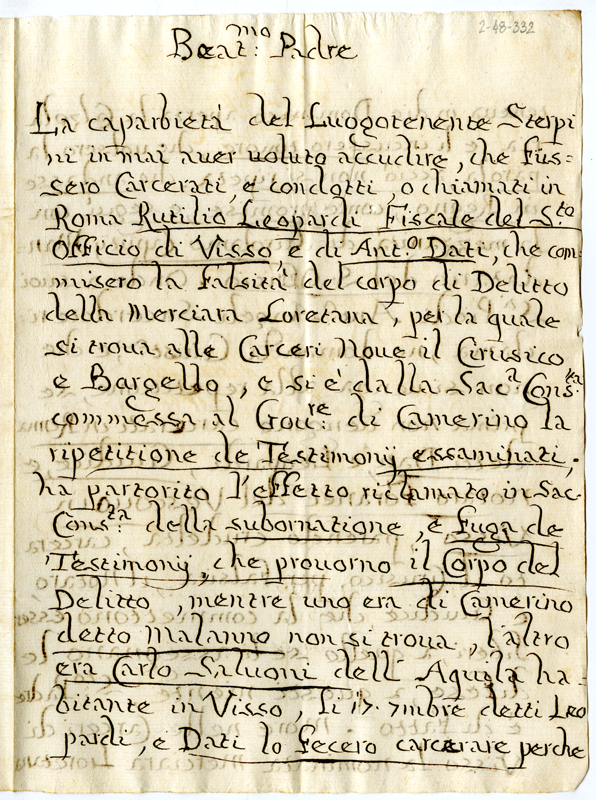 2-48-332
Beat.mo Padre
La caparbietà del Luogotenente Sterpi
ni in mai auer uoluto accudire, che fus=
sero Carcerati, e condotti, o chiamati in
Roma Rutilio Leopardi Fiscale del S.to
Officio di Visso, e di Ant.o Dati, che com
misero la falsità del corpo di Delitto
della Merciara Loretana, per la quale
si troua alle Carceri Noue il Cirusico
e Bargello, e si è dalla Sac.a Cons.ta
commessa al Gou.re di Camerino la
ripetitione de Testimonij essaminati,
ha partorito l'effetto riclamato in Sac.
Cons.ta della subornatione, e fuga de
Testimonij, che prouorno il Corpo del
Delitto, mentre uno era di Camerino
detto Malanno non si troua, l'altro
era Carlo Saluoni dell'Aquila ha-
bitante in Visso, li 17. 7mbre detti Leo
pardi, e Dati lo fecero carcerare perche